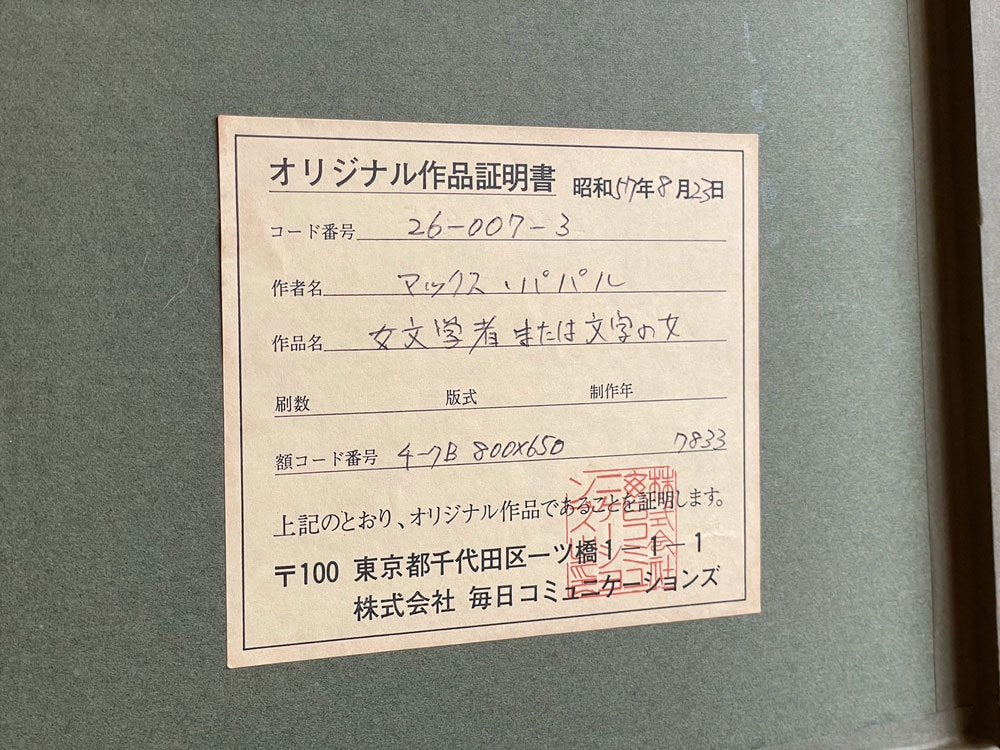 オリジナル作品証明書 昭和57年8月23日
コード番号 26-007-3
作者名 マックス・パパル
作品名 女文学者または文字の女
刷数 版式 制作年
額コード番号 4-7B 800×650 7833
上記のとおり、オリジナル作品であることを証明します。
〒100 東京都千代田区一ツ橋1-1-1
株式会社 毎日コミュニケーションズ